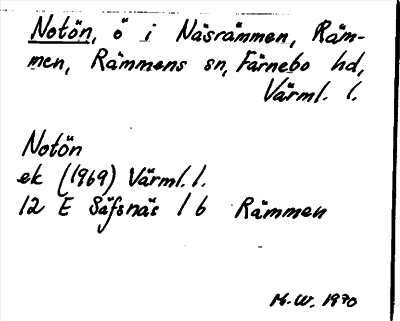 Notön, ö i Näsrämmen, Räm-
men, Rämmens sn, Färnebo hd,
Värml. l.
Notön
ek (1969) Värml. l.
12 E Säfsnäs 1 b Rämmen
M.W. 1970